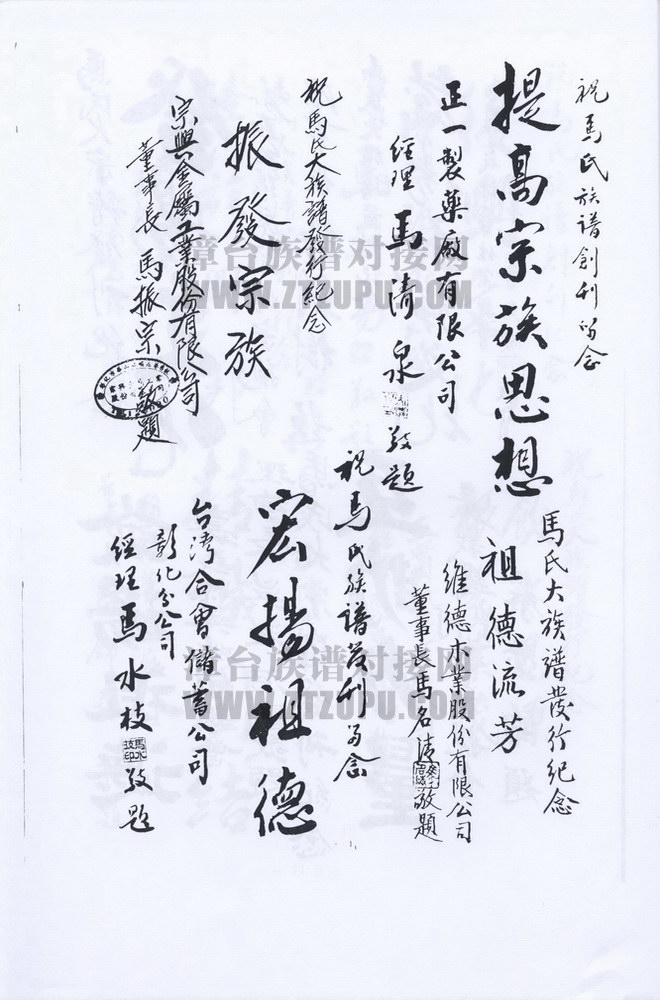 祝馬氏族譜創刊留念
提高宗族思想
正一製藥廠有限公司
經理 馬清泉 敬題
祝馬氏大族譜發行紀念
振發宗族
宗興金屬工業股份有限公司
董事長 馬振宗 敬題
馬氏大族譜發行紀念
祖德流芳
維德木業股份有限公司
董事長馬名清 敬題
祝馬氏族譜發刊留念
宏揚祖德
台湾合會儲蓄公司
彰化分公司
經理 馬水枝 敬題
馬水枝印
漳台族谱对接网
WWW.ZTZUPU.COM
漳台族谱对接网
WWW.ZTZUPU.COM